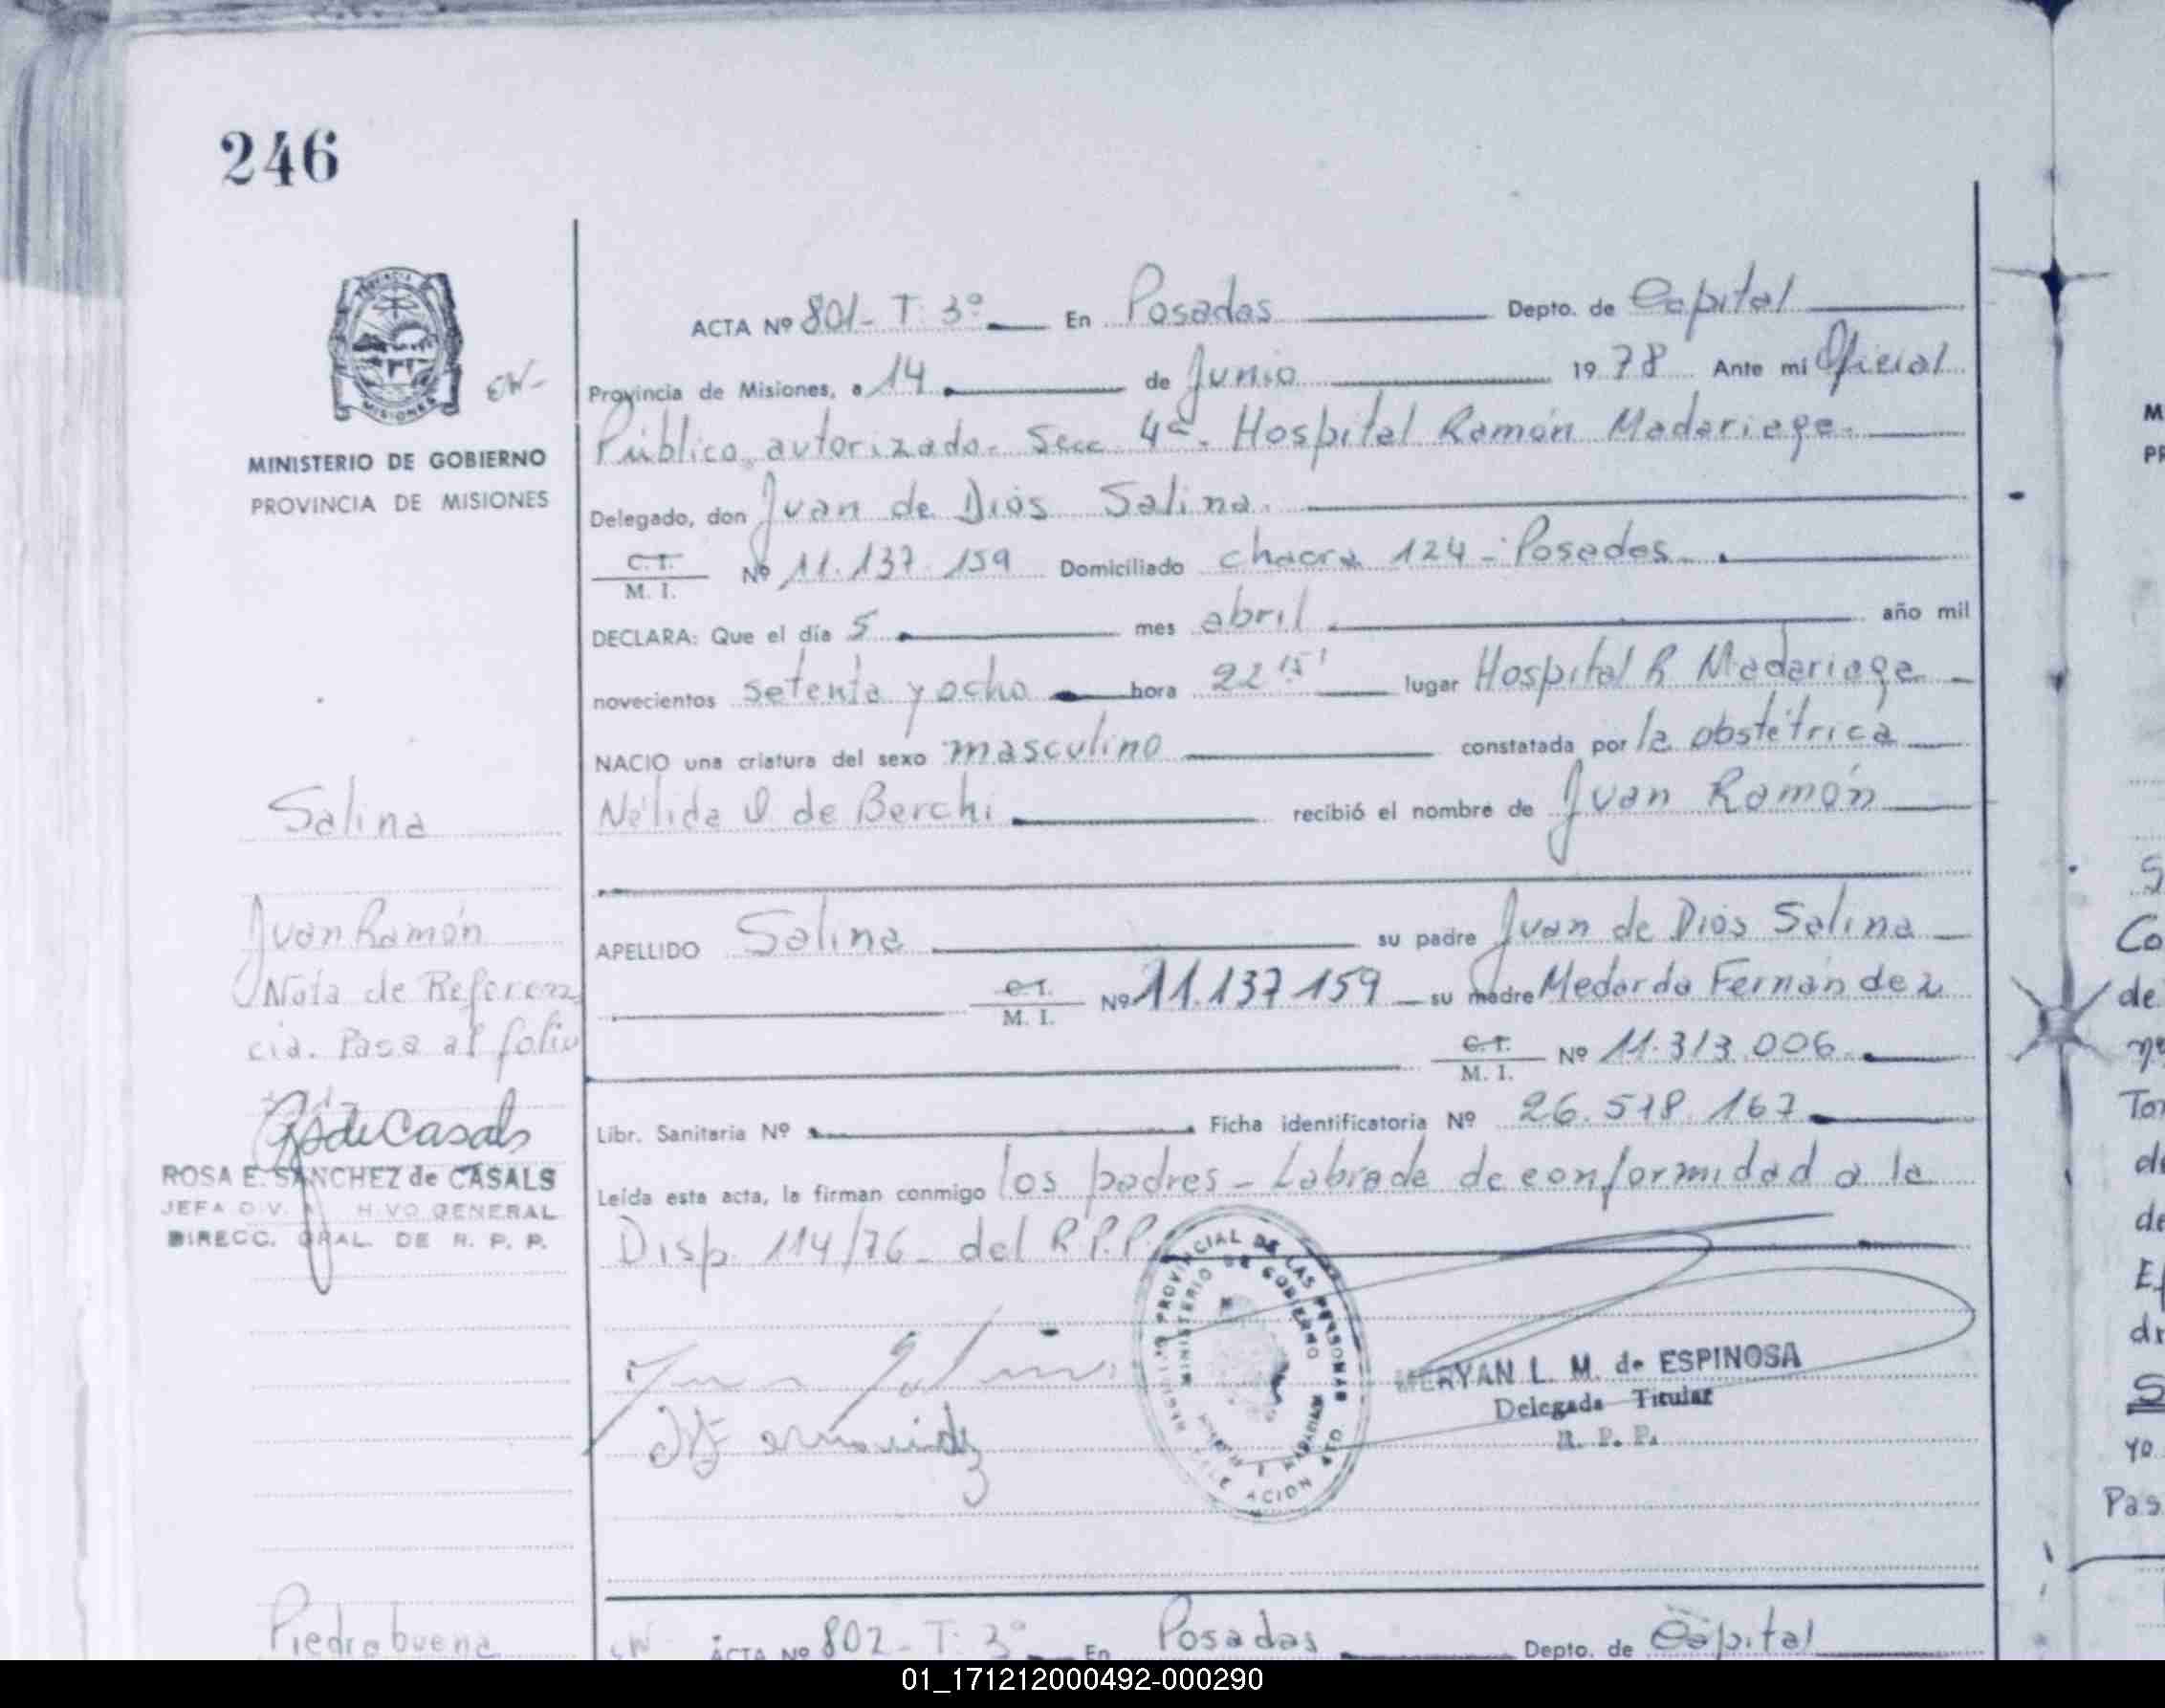 246
PROVINCIA
MISIONES
EW-
MINISTERIO DE GOBIERNO
PROVINCIA DE MISIONES
ACTA Nº 801- T. 3º En Posadas Depto. de Capital
Provincia de Misiones, a 14 de Junio 1978 Ante mi Oficial
Público autorizado- Secc. 4ª. Hospital Ramón Madariaga.
Delegado, don Juan de Dios Salina.
C. I.
M. I. Nº 11.137.159 Domiciliado chacra 124 - Posadas.
DECLARA: Que el día 5 mes abril año mil
novecientos setenta y ocho hora 22 15' lugar Hospital R Madariaga
NACIO una criatura del sexo masculino constatada por la obstétrica
Nélida de Berchi recibió el nombre de Juan Ramón
APELLIDO Salina su padre Juan de Dios Salina
C. I.
M. I. Nº 11.137.159 su madre Medarda Fernández
C. I.
M. I. Nº 11.313.006
Libr. Sanitaria Nº Ficha identificatoria Nº 26.518.167
Leída esta acta, la firman conmigo los padres - Labrada de conformidad a la
Disp. 114/76 - del R.P.P.
Salina
Juan Ramón
Nota de Referen
cia. Pasa al folio
ROSA E. SANCHEZ de CASALS
JEFA DIV. GENERAL
DIRECC. GRAL. DE R. P. P.
PROVINCIAL DE LAS PERSONAS
MINISTERIO DE GOBIERNO
MERYAN L. M. de ESPINOSA
Delegada Titular
R. P. P.
Piedrabuena
ACTA Nº 802- T. 3º En Posadas Depto. de Capital
01_171212000492-000290